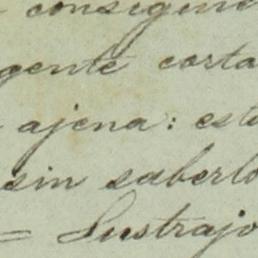 consigui
gente corta
ajena: est
sin saberlo
= Sustrajo